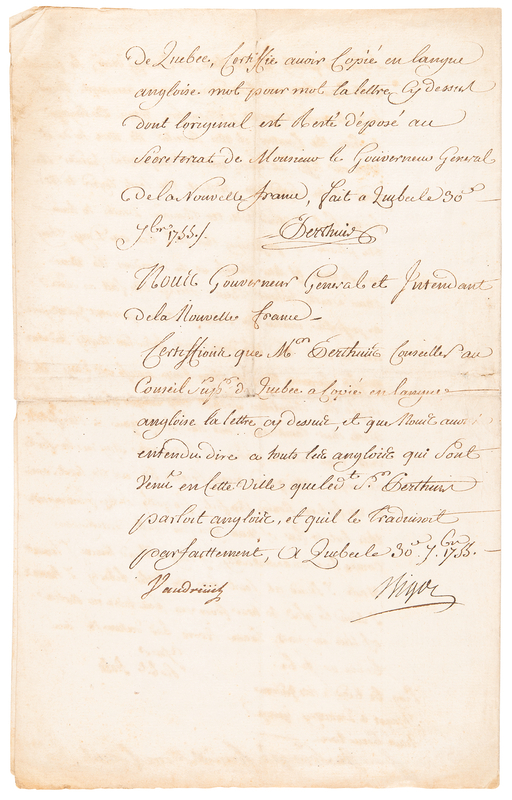 de Quebec, Certiffie avoir Copié en langue
angloise mot pour mot la lettre Cy dessus
dont l'original est Resté déposé au
Sécretariat de Monsieur le Gouverneur General
de la Nouvelle france, fait a Quebec le 30e
7bre 1755./.
Perthuis
Nous Gouverneur General et Intendant
de la Nouvelle france
Certiffions que Mon Perthuis Conseiller au
Conseil Supr d. Quebec a Copié en langue
angloise la lettre cy dessus, et que Nous avons
entendu dire a touts les anglois qui Sont
Venus en Cette Ville que led. Sr. Perthuis
parloit anglois, et quil le Traduisoit
parfaittement, A Quebec le 30e 7bre 1755.
Vaudreuil
Bigot